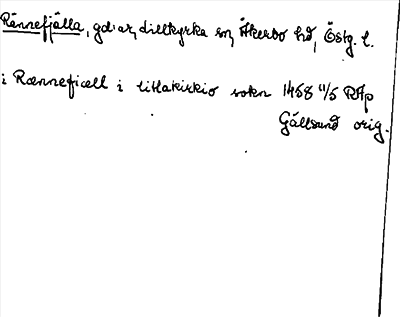 Rännefjälla, gd. ar, Lillkyrka sn, Åkerbo hd, Östg. l.
i Rænnefiæll i litlakirkio sokn 1458 11/5 RAp
Gällsund orig.